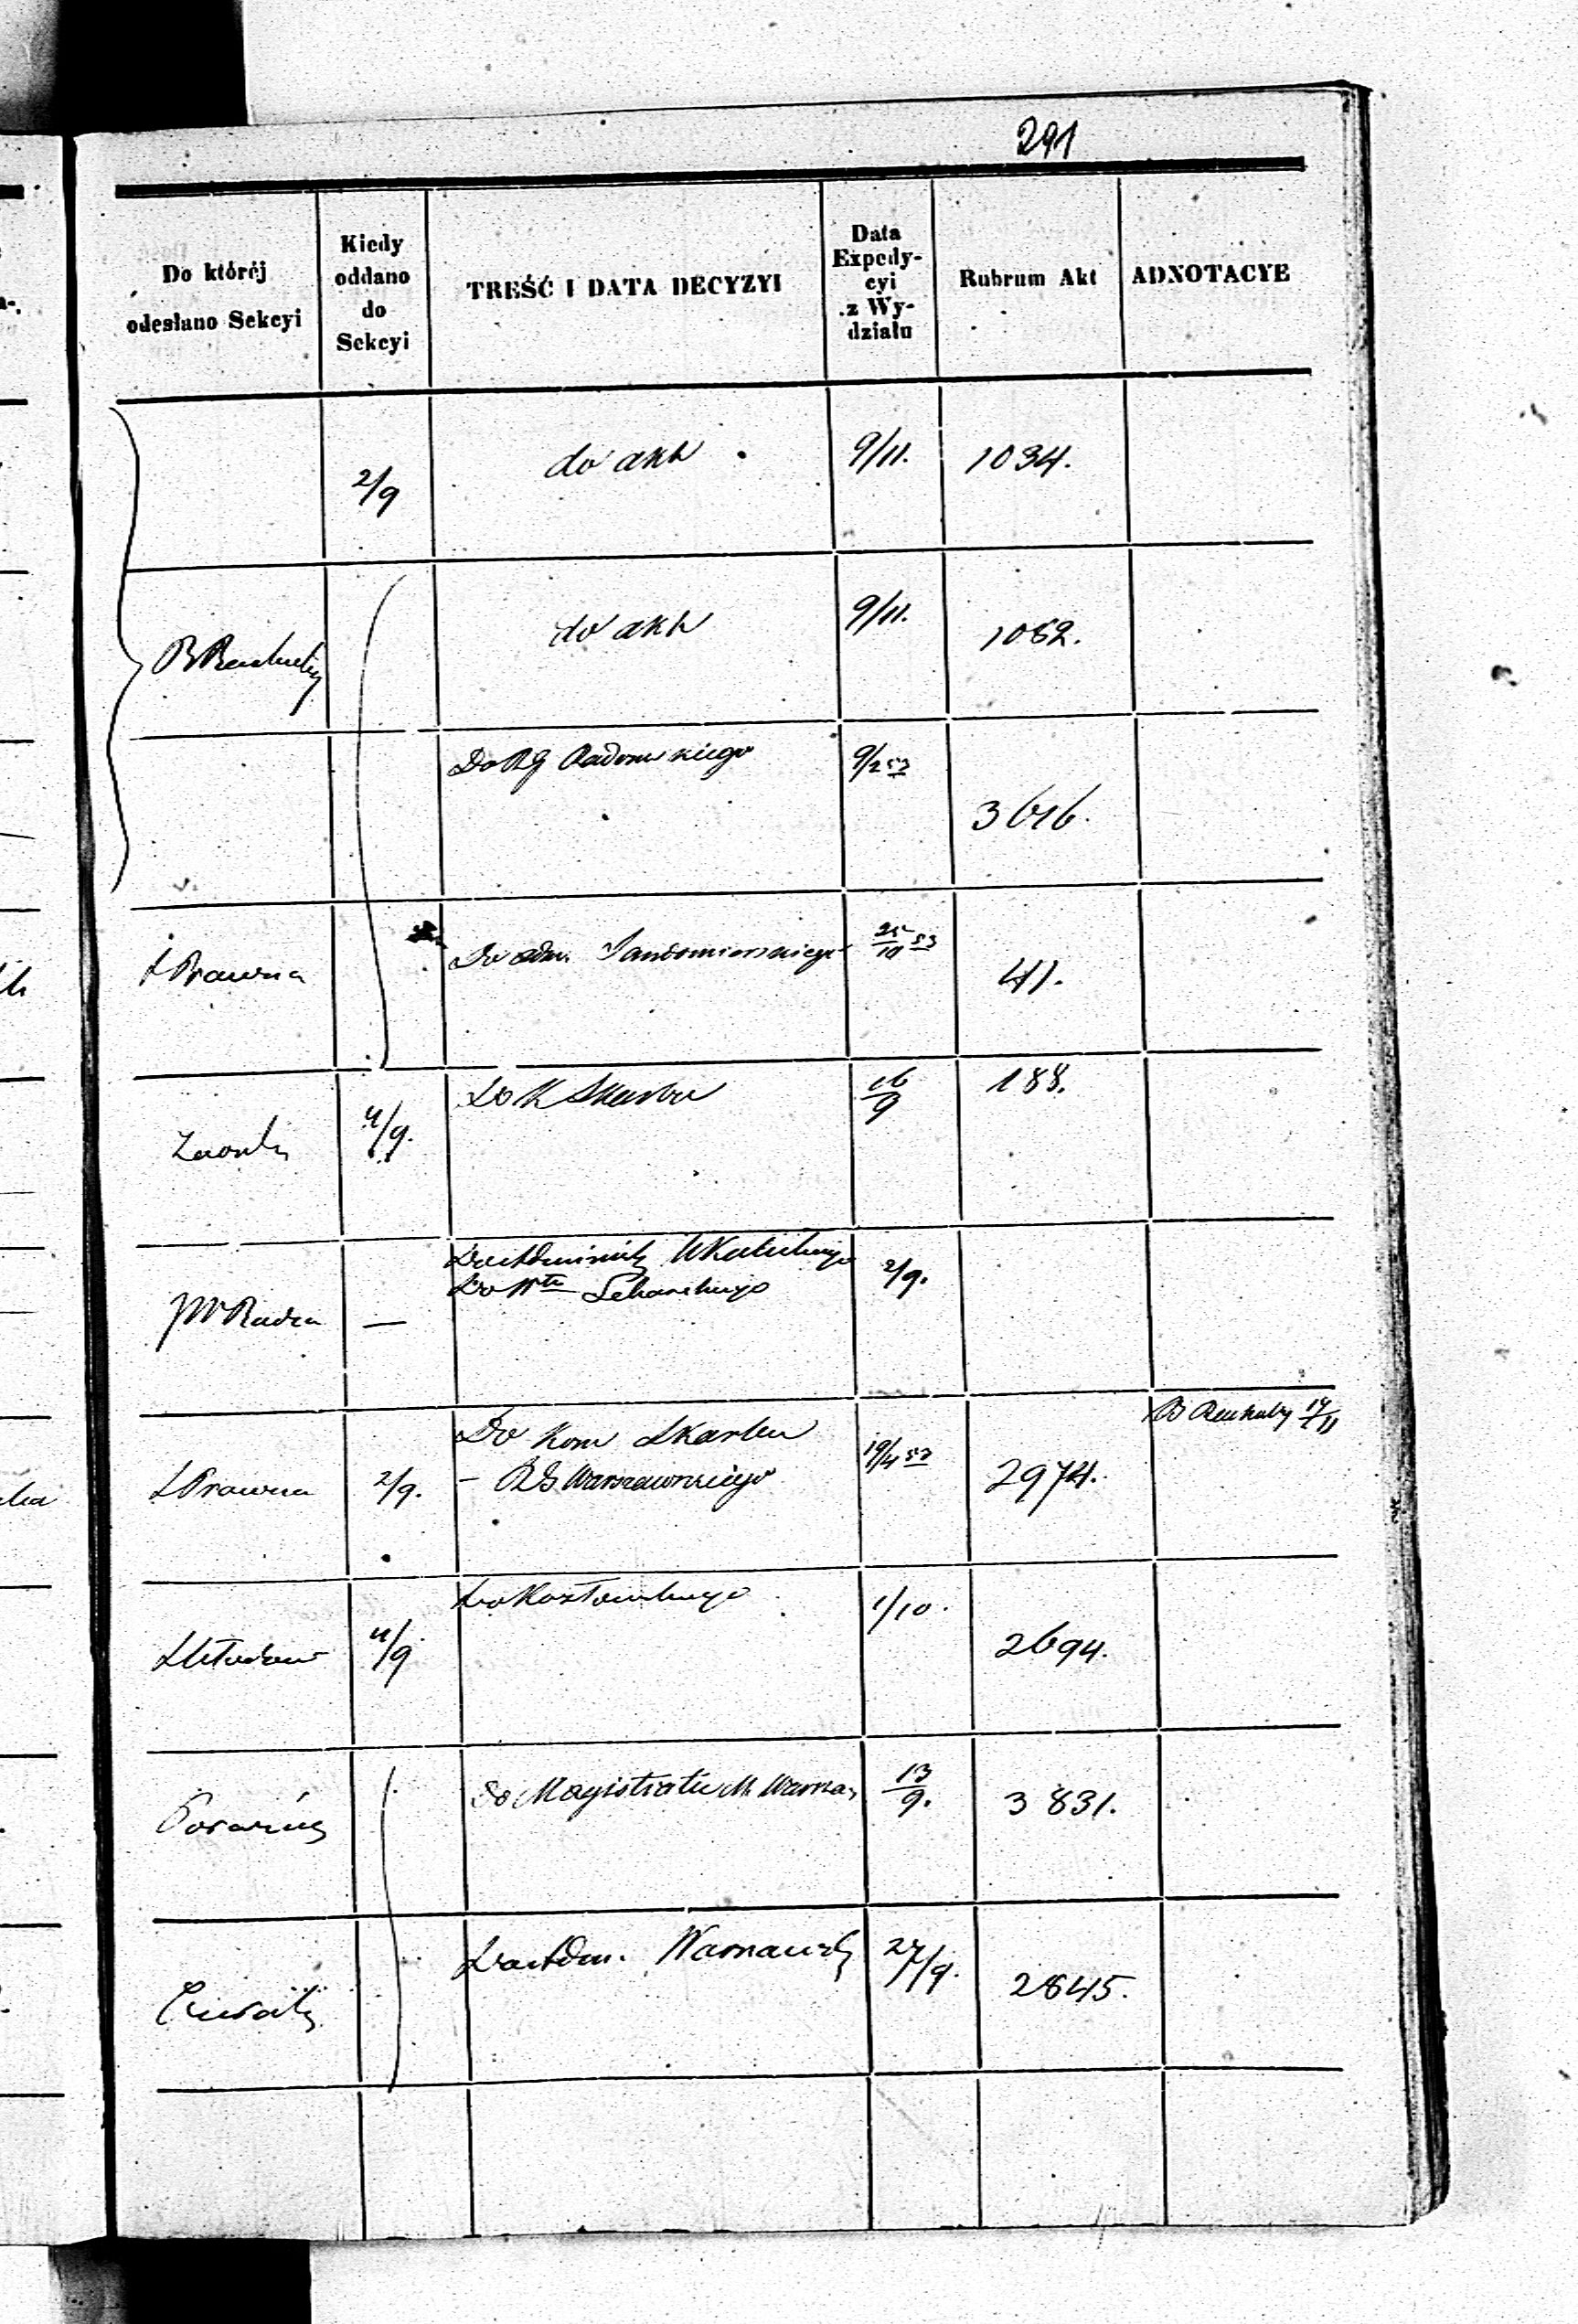 291
Do któréj odesłano Sekcyi
Kiedy oddano do Sekcyi
TREŚĆ I DATA DECYZYI
Data Expedycyi z Wydziału
Rubrum Akt
ADNOTACYE
2/9 do akt 9/11. 1034.
do akt 9/11. 1062.
Do RG Radomskiego 9/2 53 3616.
S Prawna Do adm. Sandomierskiego 25/10 53 41.
4/9. Do K Skarbu 16/9 188.
JW Radca — 2/9.
S Prawna 2/9. Do Kom Skarbu 19/4 53 2974.
- RG Warszawskiego
4/9 Do Kozłowskiego 1/10. 2694.
Do Magistratu M. Warsza 13/9. 3831.
Do Adm. 27/9. 2845.